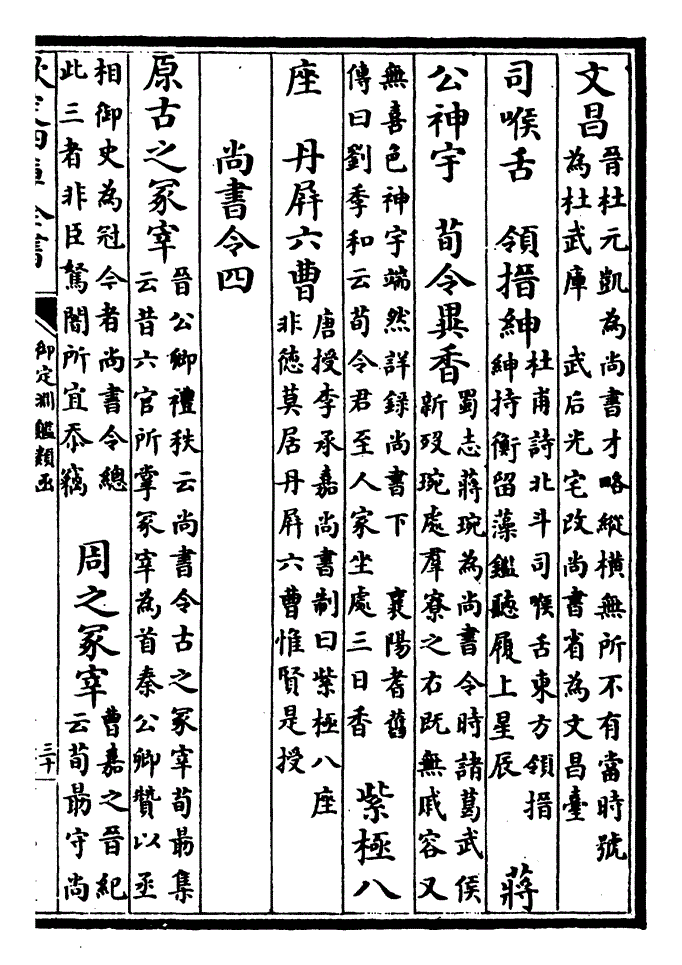 文昌 晉杜元凱為尚書才略縱橫無所不有當時號
為杜武庫 武后光宅改尚書省為文昌臺
司喉舌 領搢紳 杜甫詩北斗司喉舌東方領搢
紳持衡留藻鑑聽履上星辰 蔣
公神宇 荀令異香 蜀志蔣琬為尚書令時諸葛武侯
新歿琬處羣寮之右既無戚容又
無喜色神宇端然詳錄尚書下 襄陽耆舊
傳曰劉季和云荀令君至人家坐處三日香 紫極八
座 丹屛六曹 唐授李承嘉尚書制曰紫極八座
非徳莫居丹屛六曹惟賢是授
尚書令四
原古之冢宰 晉公卿禮秩云尚書令古之冢宰荀勗集
云昔六官所掌冢宰為首秦公卿贊以丞
相御史為冠令者尚書令總
此三者非臣駑闇所宜忝竊 周之冢宰 曹嘉之晉紀
云荀勗守尚
欽定四庫全書
御定淵鑑類函
三十